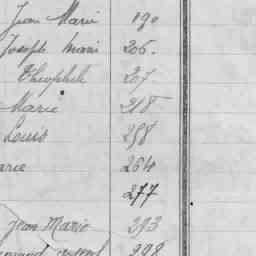 Jean Marie 190
Joseph Marie 206.
Théophile 207
Marie 218
Louis 258
arie 264
277
Jean Marie 293
298